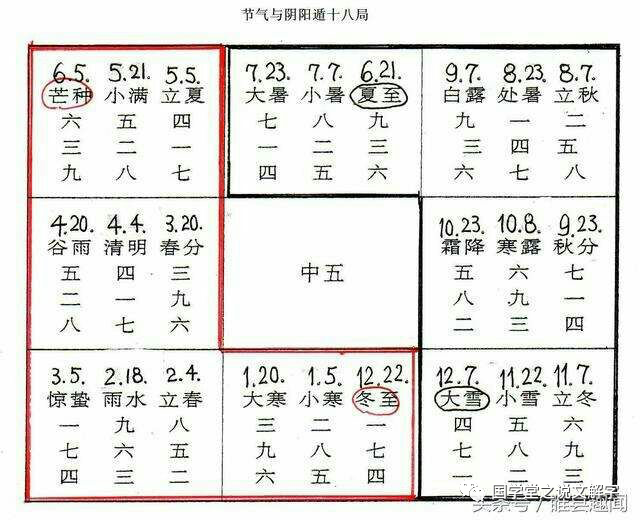 节气与阴阳遁十八局
6.5. 5.21. 5.5. 7.23. 7.7. 6.21. 9.7. 8.23. 8.7.
芒种 小满 立夏 大暑 小暑 夏至 白露 处暑 立秋
六 五 四 七 八 九 九 一 二
三 二 一 一 二 三 三 四 五
九 八 七 四 五 六 六 七 八
4.20. 4.4. 3.20. 10.23. 10.8. 9.23.
谷雨 清明 春分 霜降 寒露 秋分
五 四 三 中五 五 六 七
二 一 九 八 九 一
八 七 六 二 三 四
3.5. 2.18. 2.4. 1.20. 1.5. 12.22. 12.7. 11.22. 11.7.
惊蛰 雨水 立春 大寒 小寒 冬至 大雪 小雪 立冬
一 九 八 三 二 一 四 五 六
七 六 五 九 八 七 七 八 九
四 三 二 六 五 四 一 二 三
国学堂之说文解字
头条号/睢县趣闻